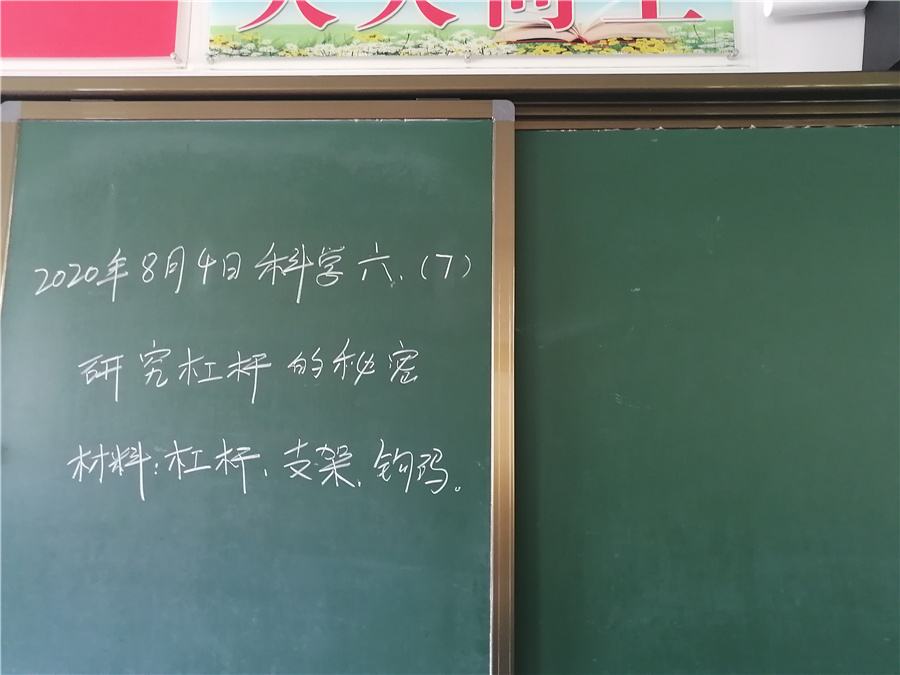 2020年8月4日科学六、(7)
研究杠杆的秘密
材料:杠杆、支架、钩码。